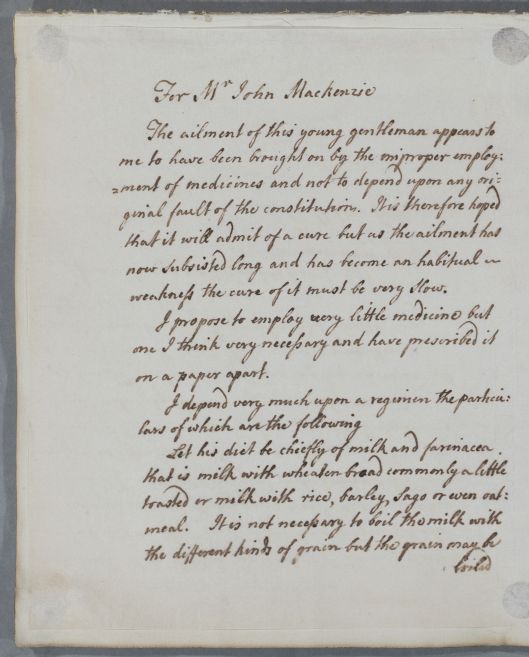 For Mr John Mackenzie
The ailment of this young gentleman appears to
me to have been brought on by the improper employ:
=ment of medicines and not to depend upon any ori:
ginal fault of the constitution. It is therefore hoped
that it will admit of a cure but as the ailment has
now subsisted long and has become an habitual
weakness the cure of it must be very slow.
I propose to employ very little medicine but
one I think very necessary and have prescribed it
on a paper apart.
I depend very much upon a regimen the particu:
lars of which are the following
Let his diet be chiefly of milk and farinacea.
that is milk with wheaten bread commonly a little
toasted or milk with rice, barley, sago or even oat:
meal. It is not necessary to boil the milk with
the different kinds of grain but the grain may be
boiled